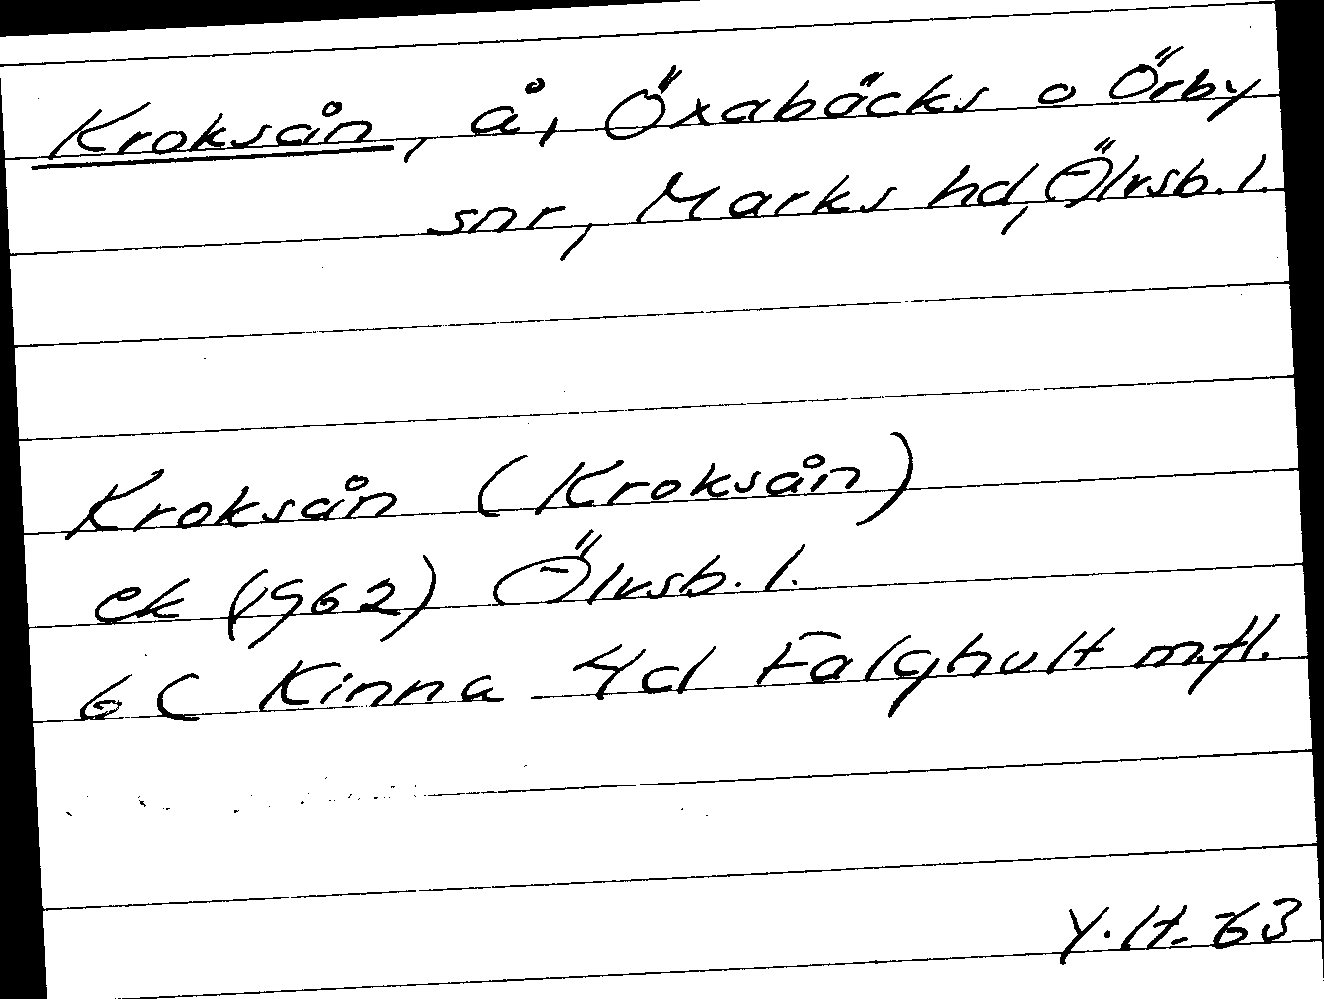 Kroksån, å, Öxabäcks o Örby
snr, Marks hd, Älvsb. l.
Kroksån (Kroksån)
ek (1962) Älvsb. l.
6C Kinna 4d Fälghult m.fl.
Y. It. 63